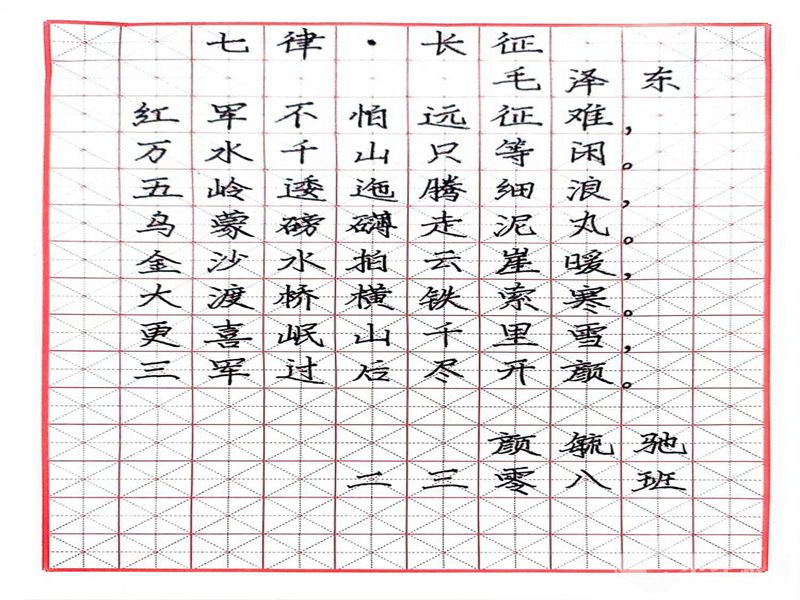 七律·长征
毛泽东
红军不怕远征难，
万水千山只等闲。
五岭逶迤腾细浪，
乌蒙磅礴走泥丸。
金沙水拍云崖暖，
大渡桥横铁索寒。
更喜岷山千里雪，
三军过后尽开颜。
颜毓驰
二三零八班